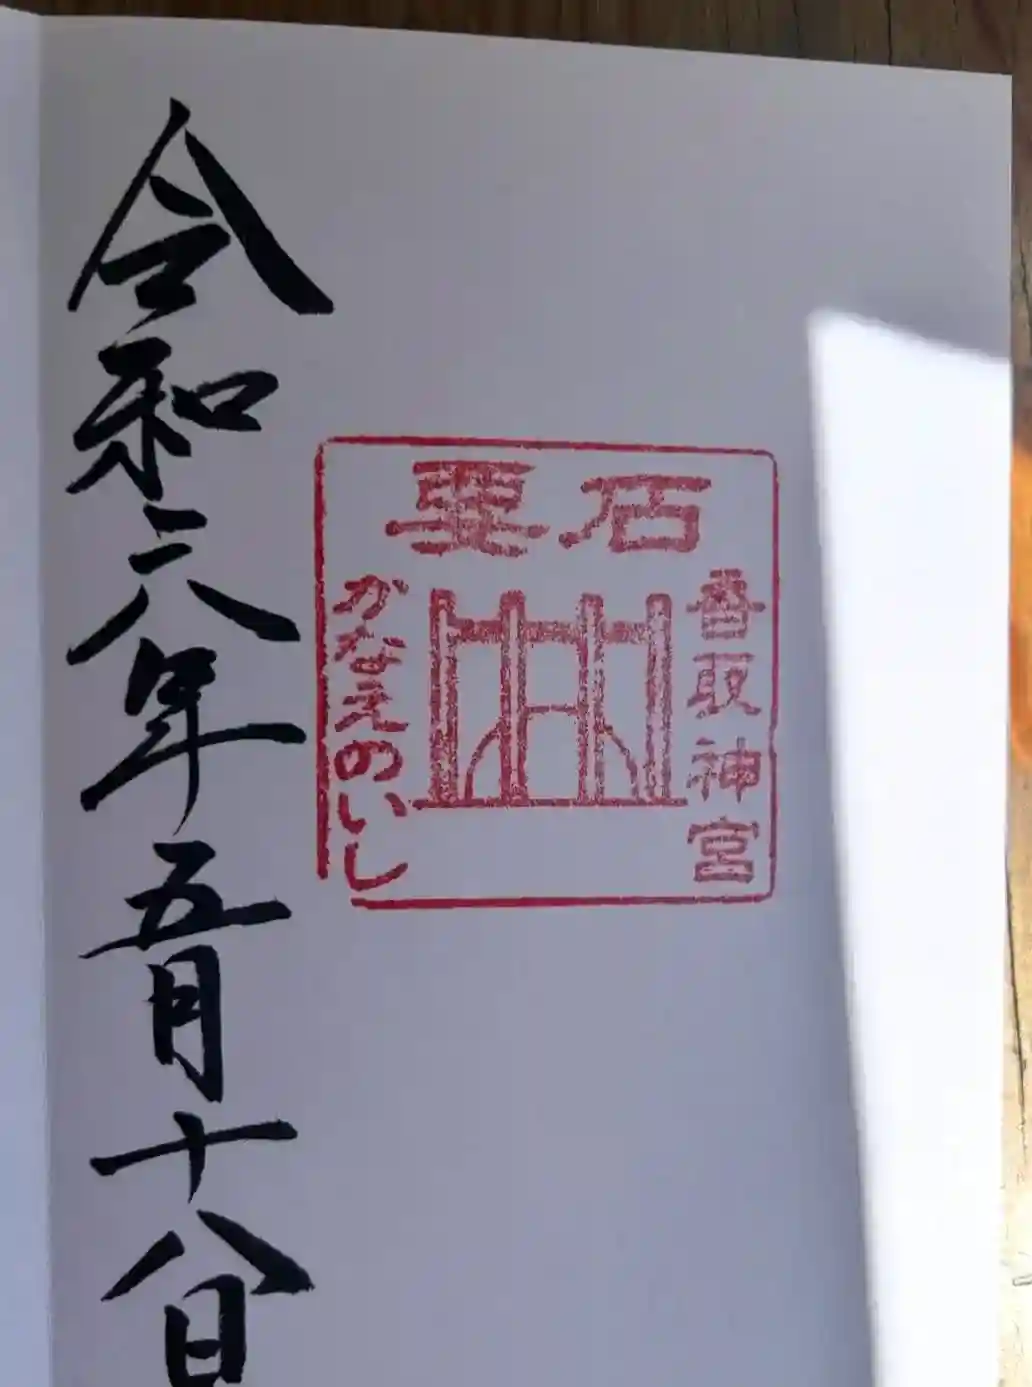 要石
香取神宮
かなえのいし
令和六年五月十八日